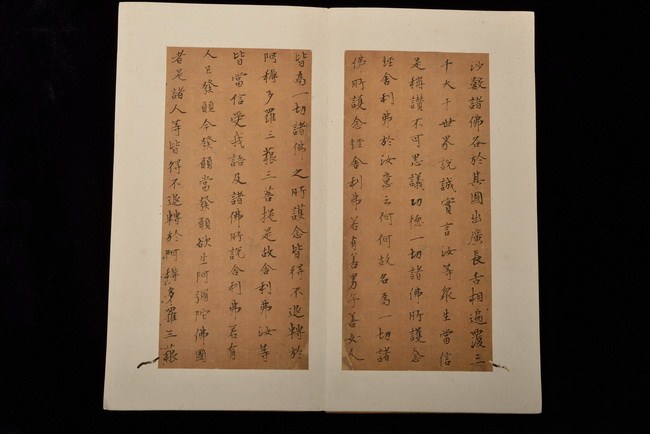 沙數諸佛各於其國出廣長舌相遍覆三
千大千世界說誠實言汝等眾生當信
是稱讚不可思議功德一切諸佛所護念
經舍利弗於汝意云何何故名為一切諸
佛所護念經舍利弗若有善男子善女人
皆為一切諸佛之所護念皆得不退轉於
阿耨多羅三藐三菩提是故舍利弗汝等
皆當信受我語及諸佛所說舍利弗若有
人已發願今發願當發願欲生阿彌陀佛國
者是諸人等皆得不退轉於阿耨多羅三藐